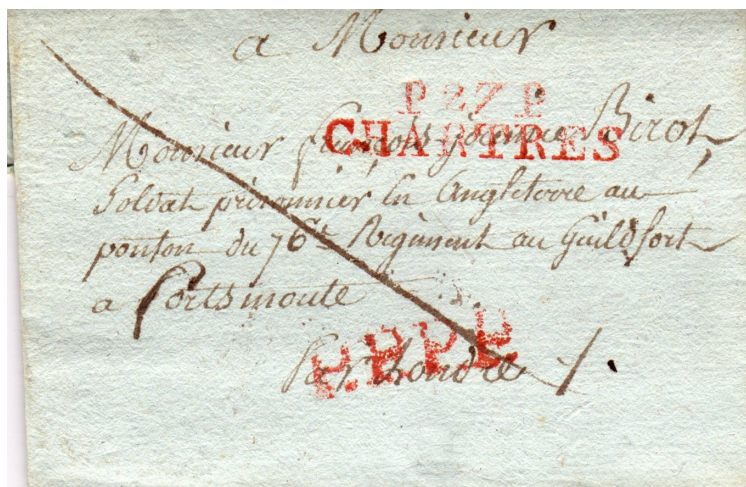 a Monsieur
P 27 P
CHARTRES
Monsieur françois Birot,
Soldat prisonnier En Angleterre au
ponton du 76e Regiment au Guildfort
a Portsmoute
P.PPP
Par Londre